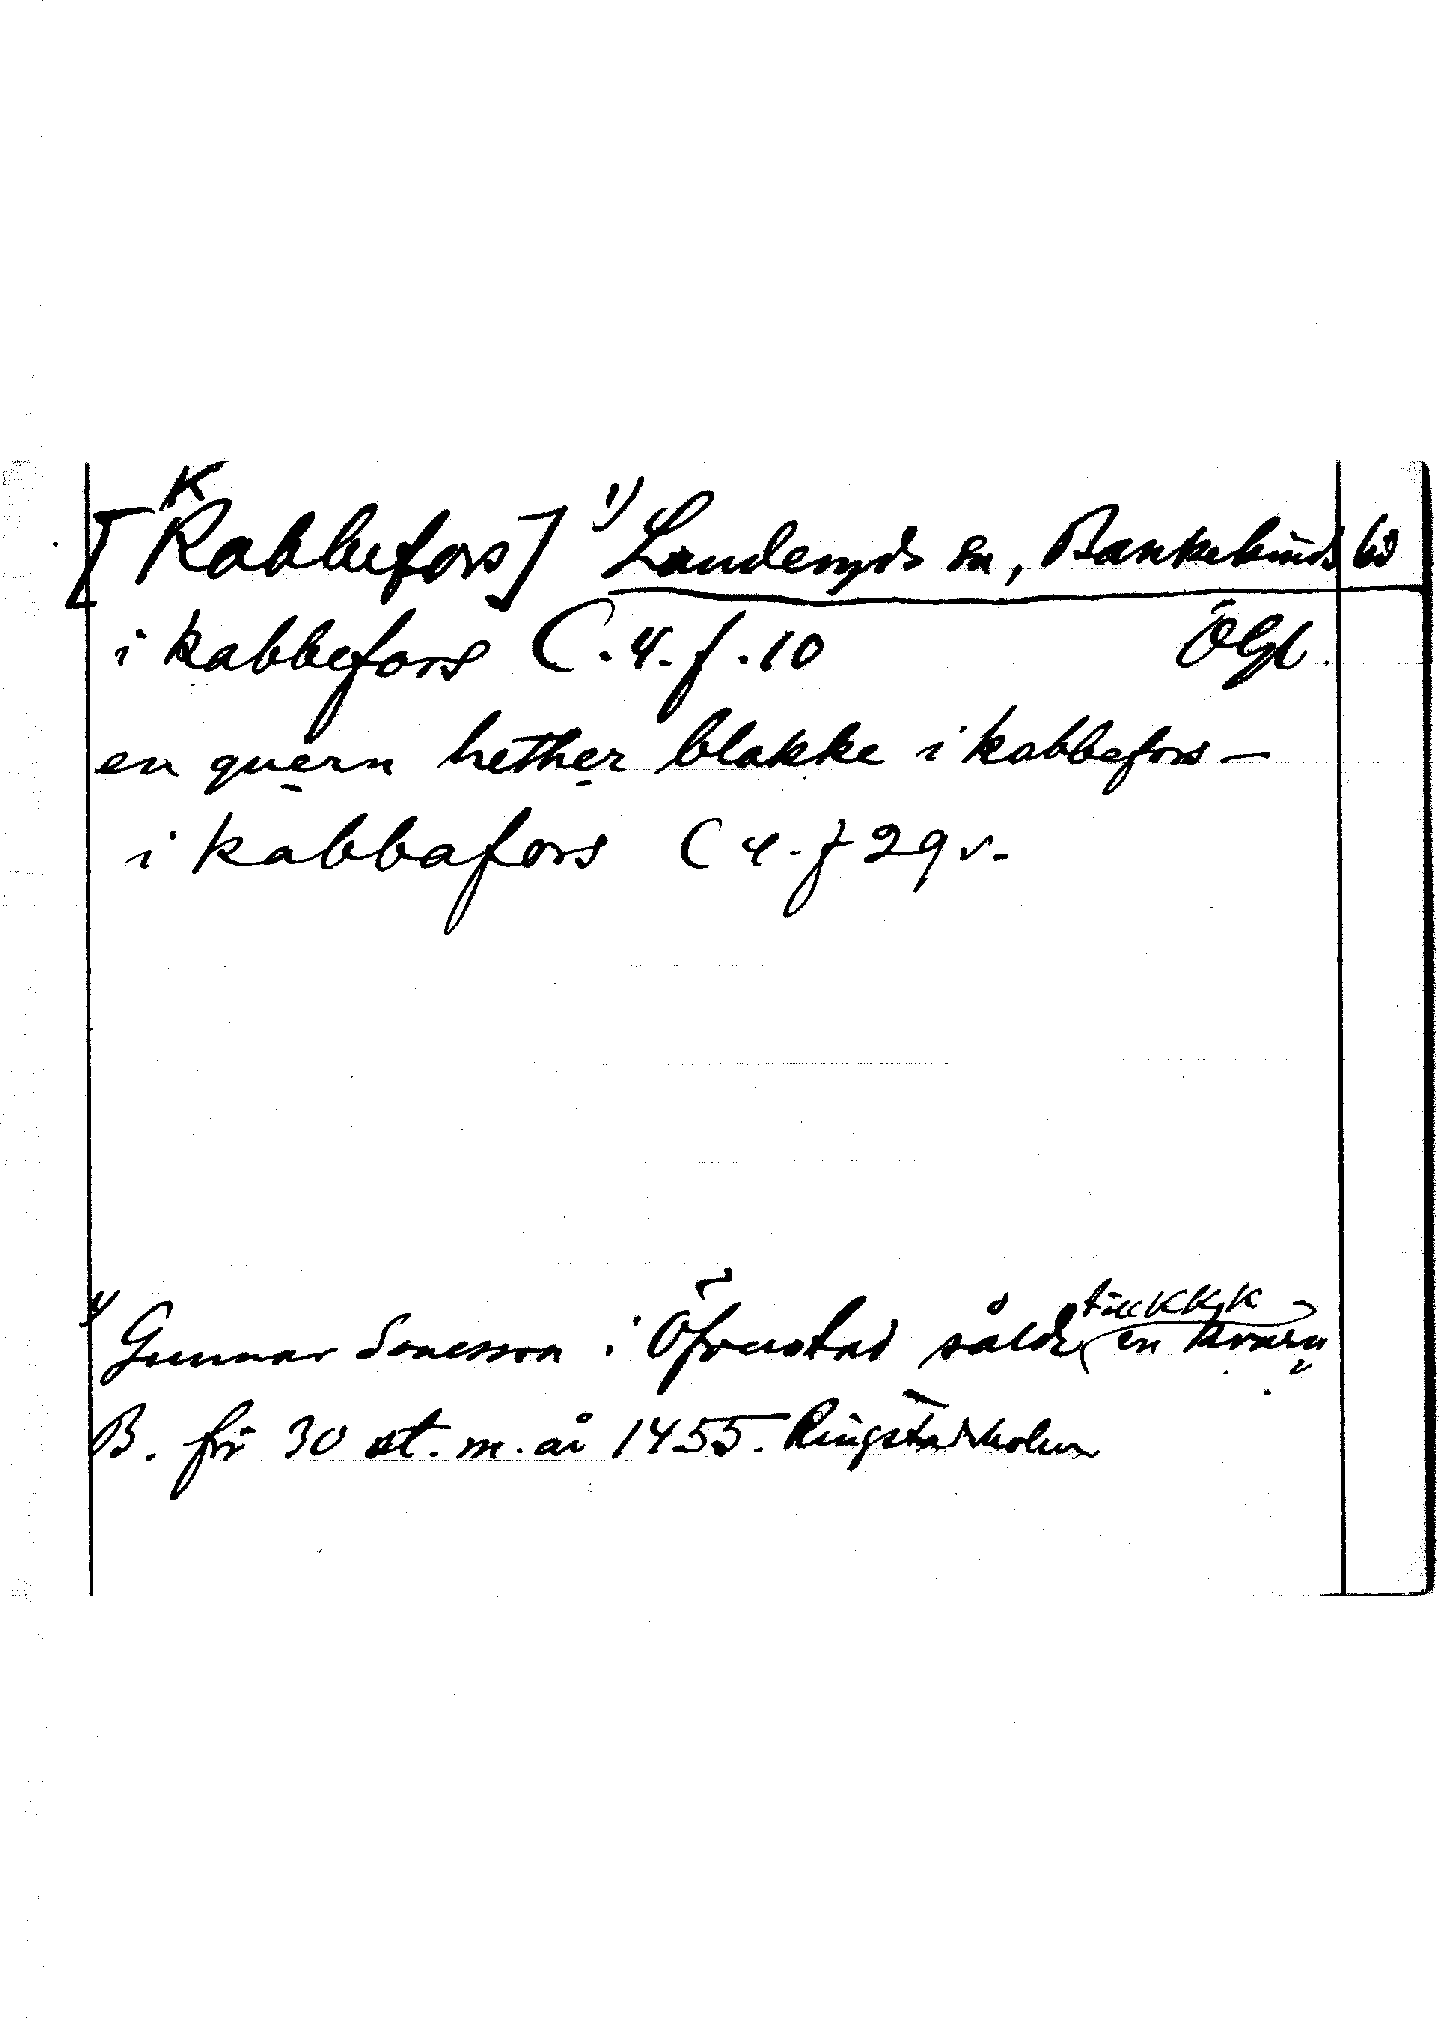 K
[Kabbefors] 1) Landeryds sn, Bankekinds hd
i kabbefors C. 4. f. 10 Ögl.
en quern hether blakke i kabbefors –
i kabbafors C 4. f 29 v.
1) Gunnar Sonesson i Öfrustad sålde till KKgK (en kvarn
B. för 30 st. m. år 1455. Ringstadholm